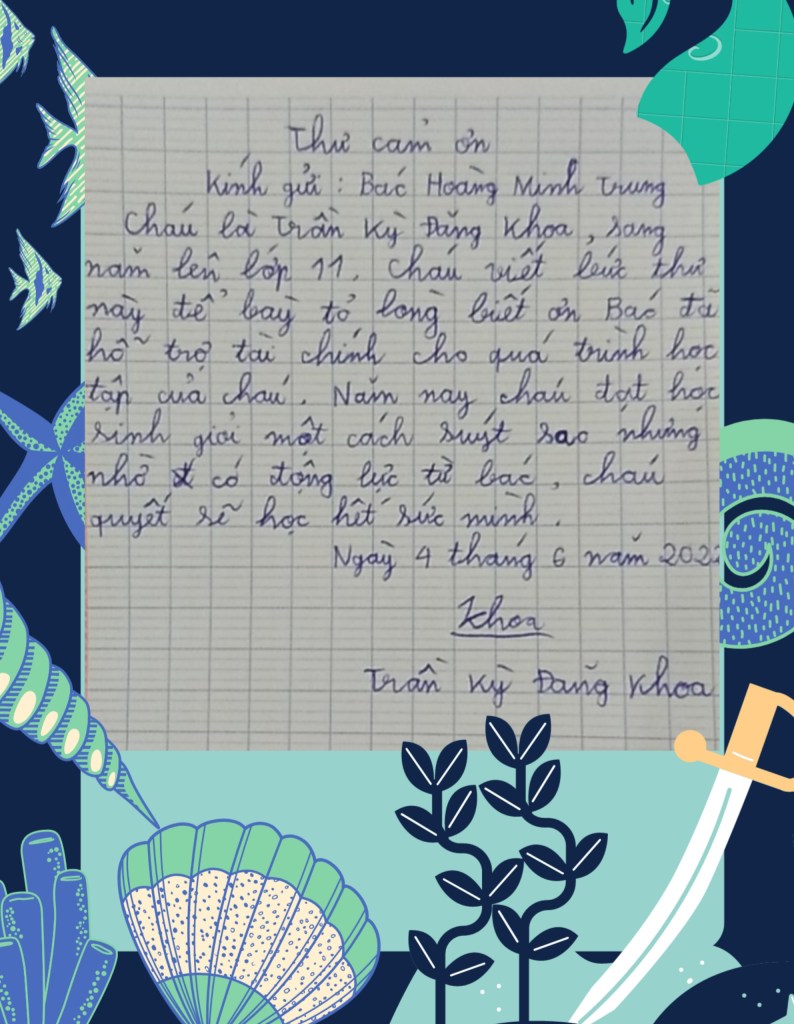 Thư cảm ơn
Kính gửi : Bác Hoàng Minh Trung
Cháu là Trần Kỳ Đăng Khoa, sang
năm lên lớp 11. Cháu viết bức thư
này để bày tỏ lòng biết ơn Bác đã
hỗ trợ tài chính cho quá trình học
tập của cháu. Năm nay cháu đạt học
sinh giỏi một cách suýt sao nhưng
nhờ có động lực từ bác, cháu
quyết sẽ học hết sức mình.
Ngày 4 tháng 6 năm 2022
Khoa
Trần Kỳ Đăng Khoa